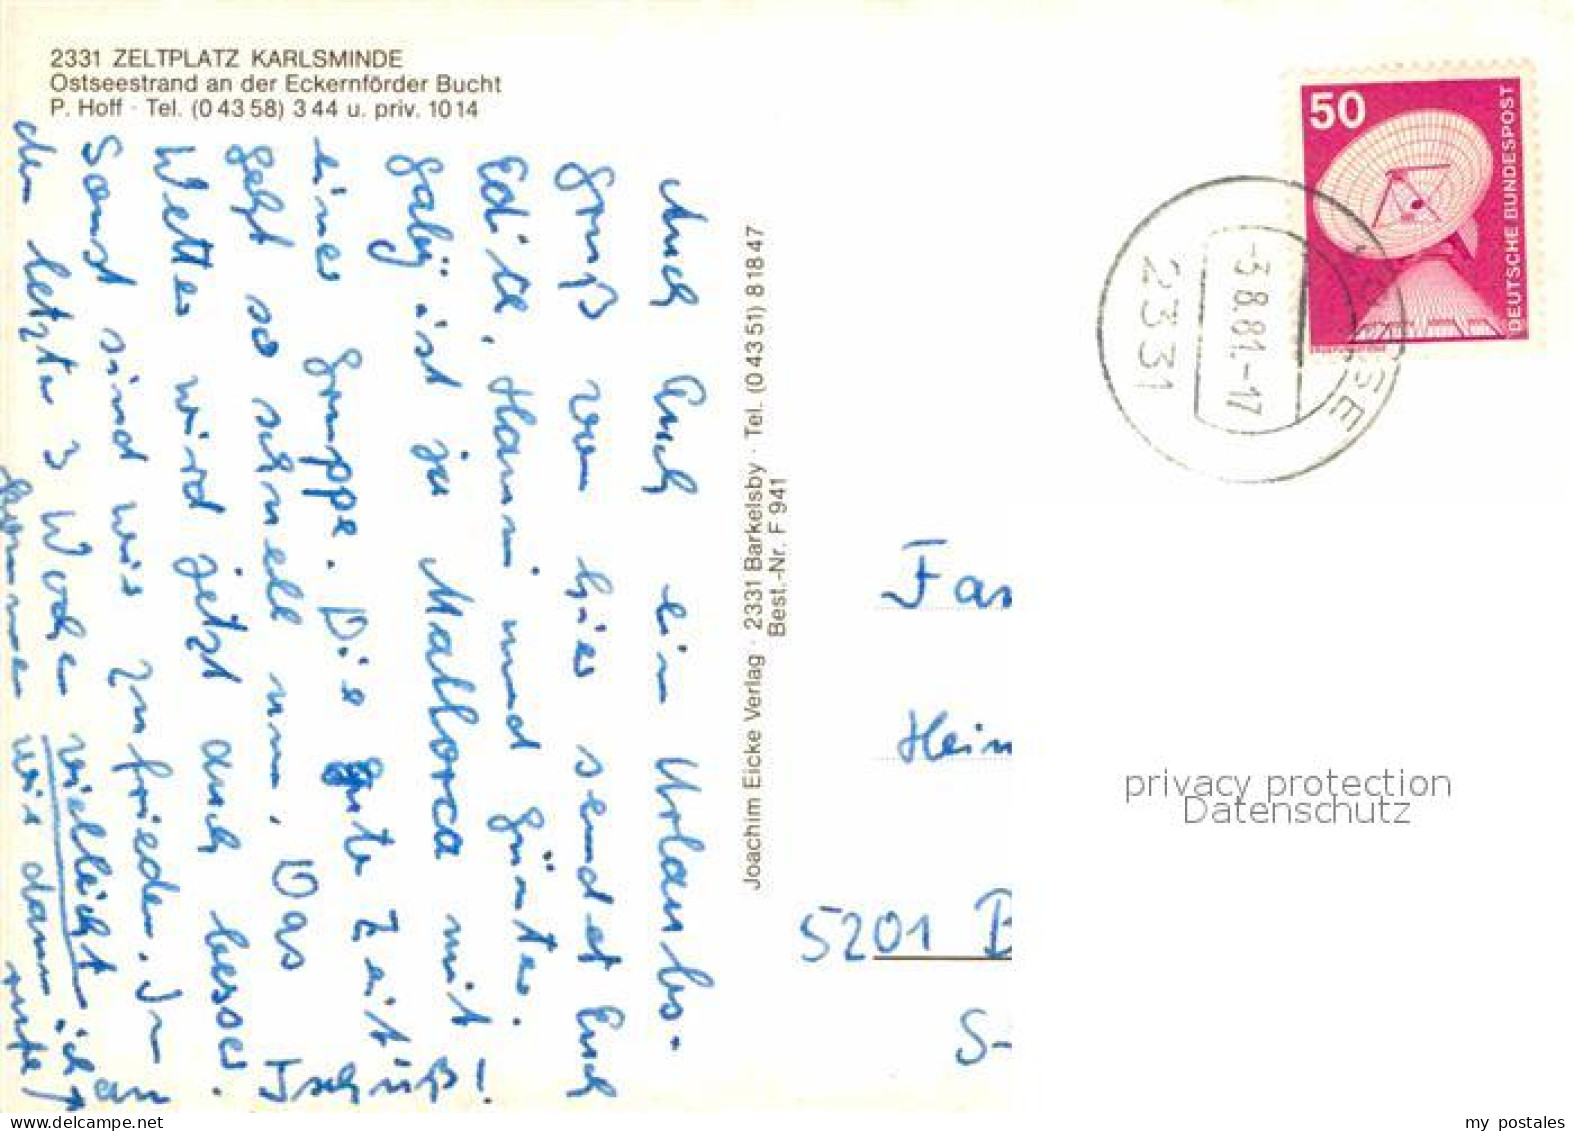 2331 ZELTPLATZ KARLSMINDE
Ostseestrand an der Eckernförder Bucht
P. Hoff · Tel. (0 43 58) 3 44 u. priv. 10 14
Auch Euch ein Urlaubs-
gruß von hier sendet Euch
Edith, Hanni und Günter.
Gaby ist ja Mallorca mit
einer Gruppe. Die gute Zeit
geht so schnell rum. Das
Wetter wird jetzt auch besser.
Sonst sind wir zufrieden. In
den letzten 3 Wochen vielleicht
kommen wir dann
Tschüß!
Joachim Eicke Verlag · 2331 Barkelsby · Tel. (0 43 51) 8 18 47
Best.-Nr. F 941
50
DEUTSCHE BUNDESPOST
2331
-3.8.81.-17
Fam
Hein
5201 B
S-
privacy protection
Datenschutz
my postales